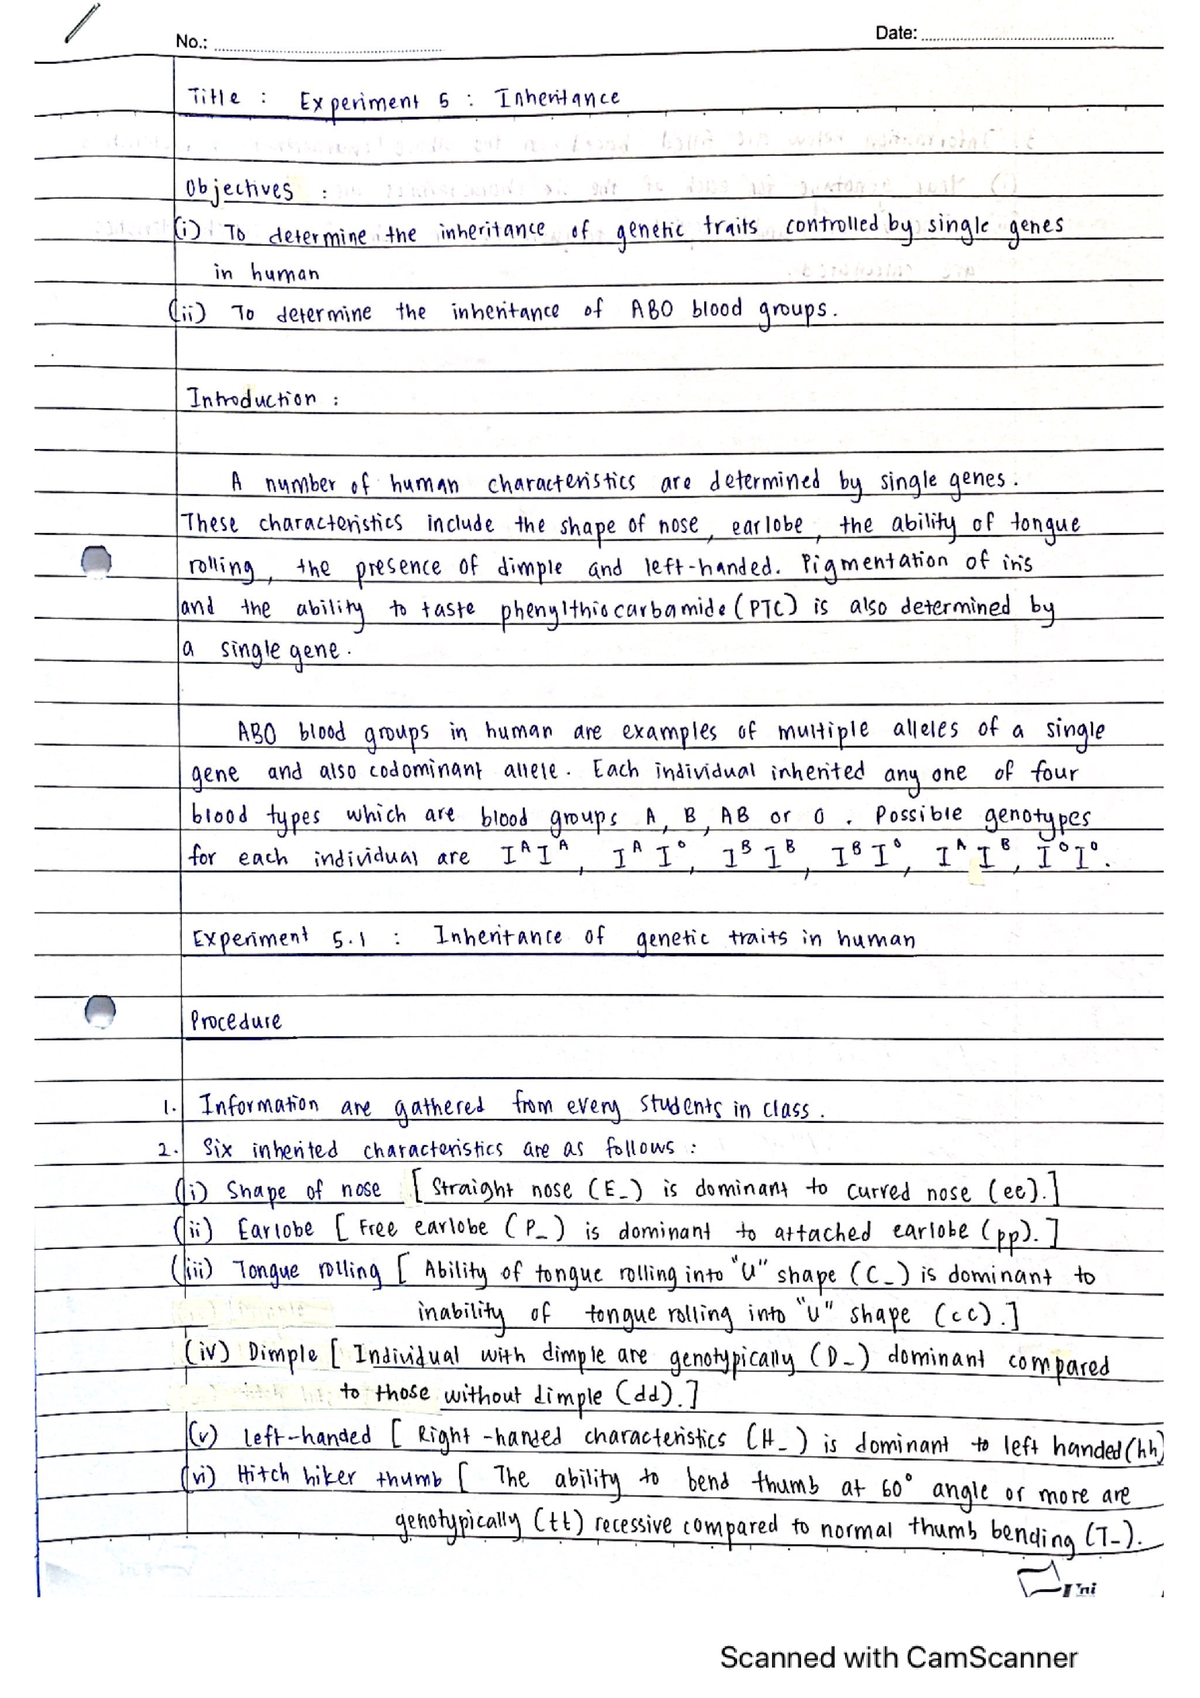 No.:
Date:
Title : Experiment 5 : Inheritance
Objectives :
(i) To determine the inheritance of genetic traits controlled by single genes
in human
(ii) To determine the inheritance of ABO blood groups.
Introduction :
A number of human characteristics are determined by single genes.
These characteristics include the shape of nose, earlobe, the ability of tongue
rolling, the presence of dimple and left-handed. Pigmentation of iris
and the ability to taste phenylthiocarbamide (PTC) is also determined by
a single gene.
ABO blood groups in human are examples of multiple alleles of a single
gene and also codominant allele. Each individual inherited any one of four
blood types which are blood groups A, B, AB or O. Possible genotypes
for each individual are Iᴬ Iᴬ, Iᴬ I⁰, Iᴮ Iᴮ, Iᴮ I⁰, Iᴬ Iᴮ, I⁰ I⁰.
Experiment 5.1 : Inheritance of genetic traits in human
Procedure
1. Information are gathered from every students in class.
2. Six inherited characteristics are as follows :
(i) Shape of nose [ Straight nose (E_) is dominant to curved nose (ee).]
(ii) Earlobe [ Free earlobe (P_) is dominant to attached earlobe (pp).]
(iii) Tongue rolling [ Ability of tongue rolling into "U" shape (C_) is dominant to
inability of tongue rolling into "U" shape (cc).]
(iv) Dimple [ Individual with dimple are genotypically (D_) dominant compared
to those without dimple (dd).]
(v) Left-handed [ Right-handed characteristics (H_) is dominant to left handed (hh)
(vi) Hitch hiker thumb [ The ability to bend thumb at 60° angle or more are
genotypically (tt) recessive compared to normal thumb bending (T_).
Scanned with CamScanner